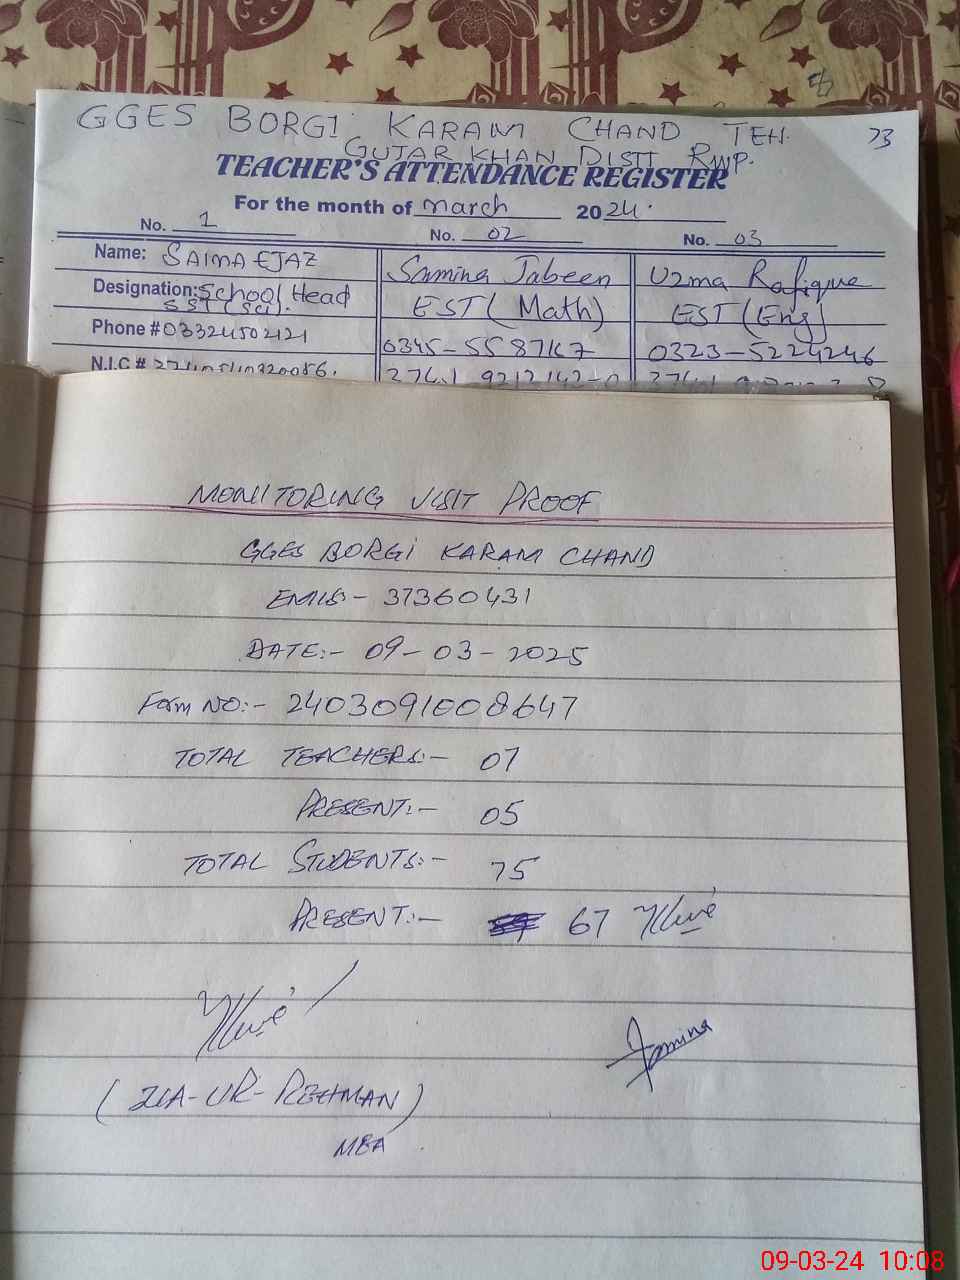 GGES BORGI KARAM CHAND TEH.
GUJAR KHAN DISTT RWP.
73
TEACHER'S ATTENDANCE REGISTER
For the month of march 2024.
No. 1 No. 02 No. 03
Name: SAIMA EJAZ Samina Jabeen Uzma Rafique
Designation: School Head EST (Math) EST (Eng)
SST (Sci).
Phone # 03324502121 0345-5587167 0323-5224246
N.I.C #
MONITORING VISIT PROOF
GGES BORGI KARAM CHAND
EMIS- 37360431
DATE:- 09-03-2025
Form NO:- 2403091008647
TOTAL TEACHERS:- 07
PRESENT:- 05
TOTAL STUDENTS:- 75
PRESENT:- 67
Samina
(ZIA-UR-REHMAN)
MEA
09-03-24 10:08